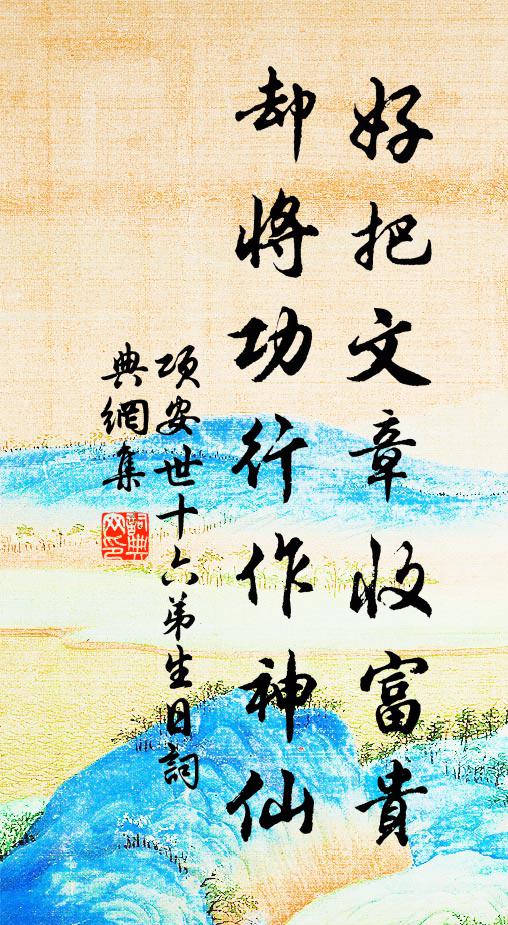 好把文章收富貴
却將功行作神仙
項安世十六弟生日詞
典網集
詞典網印